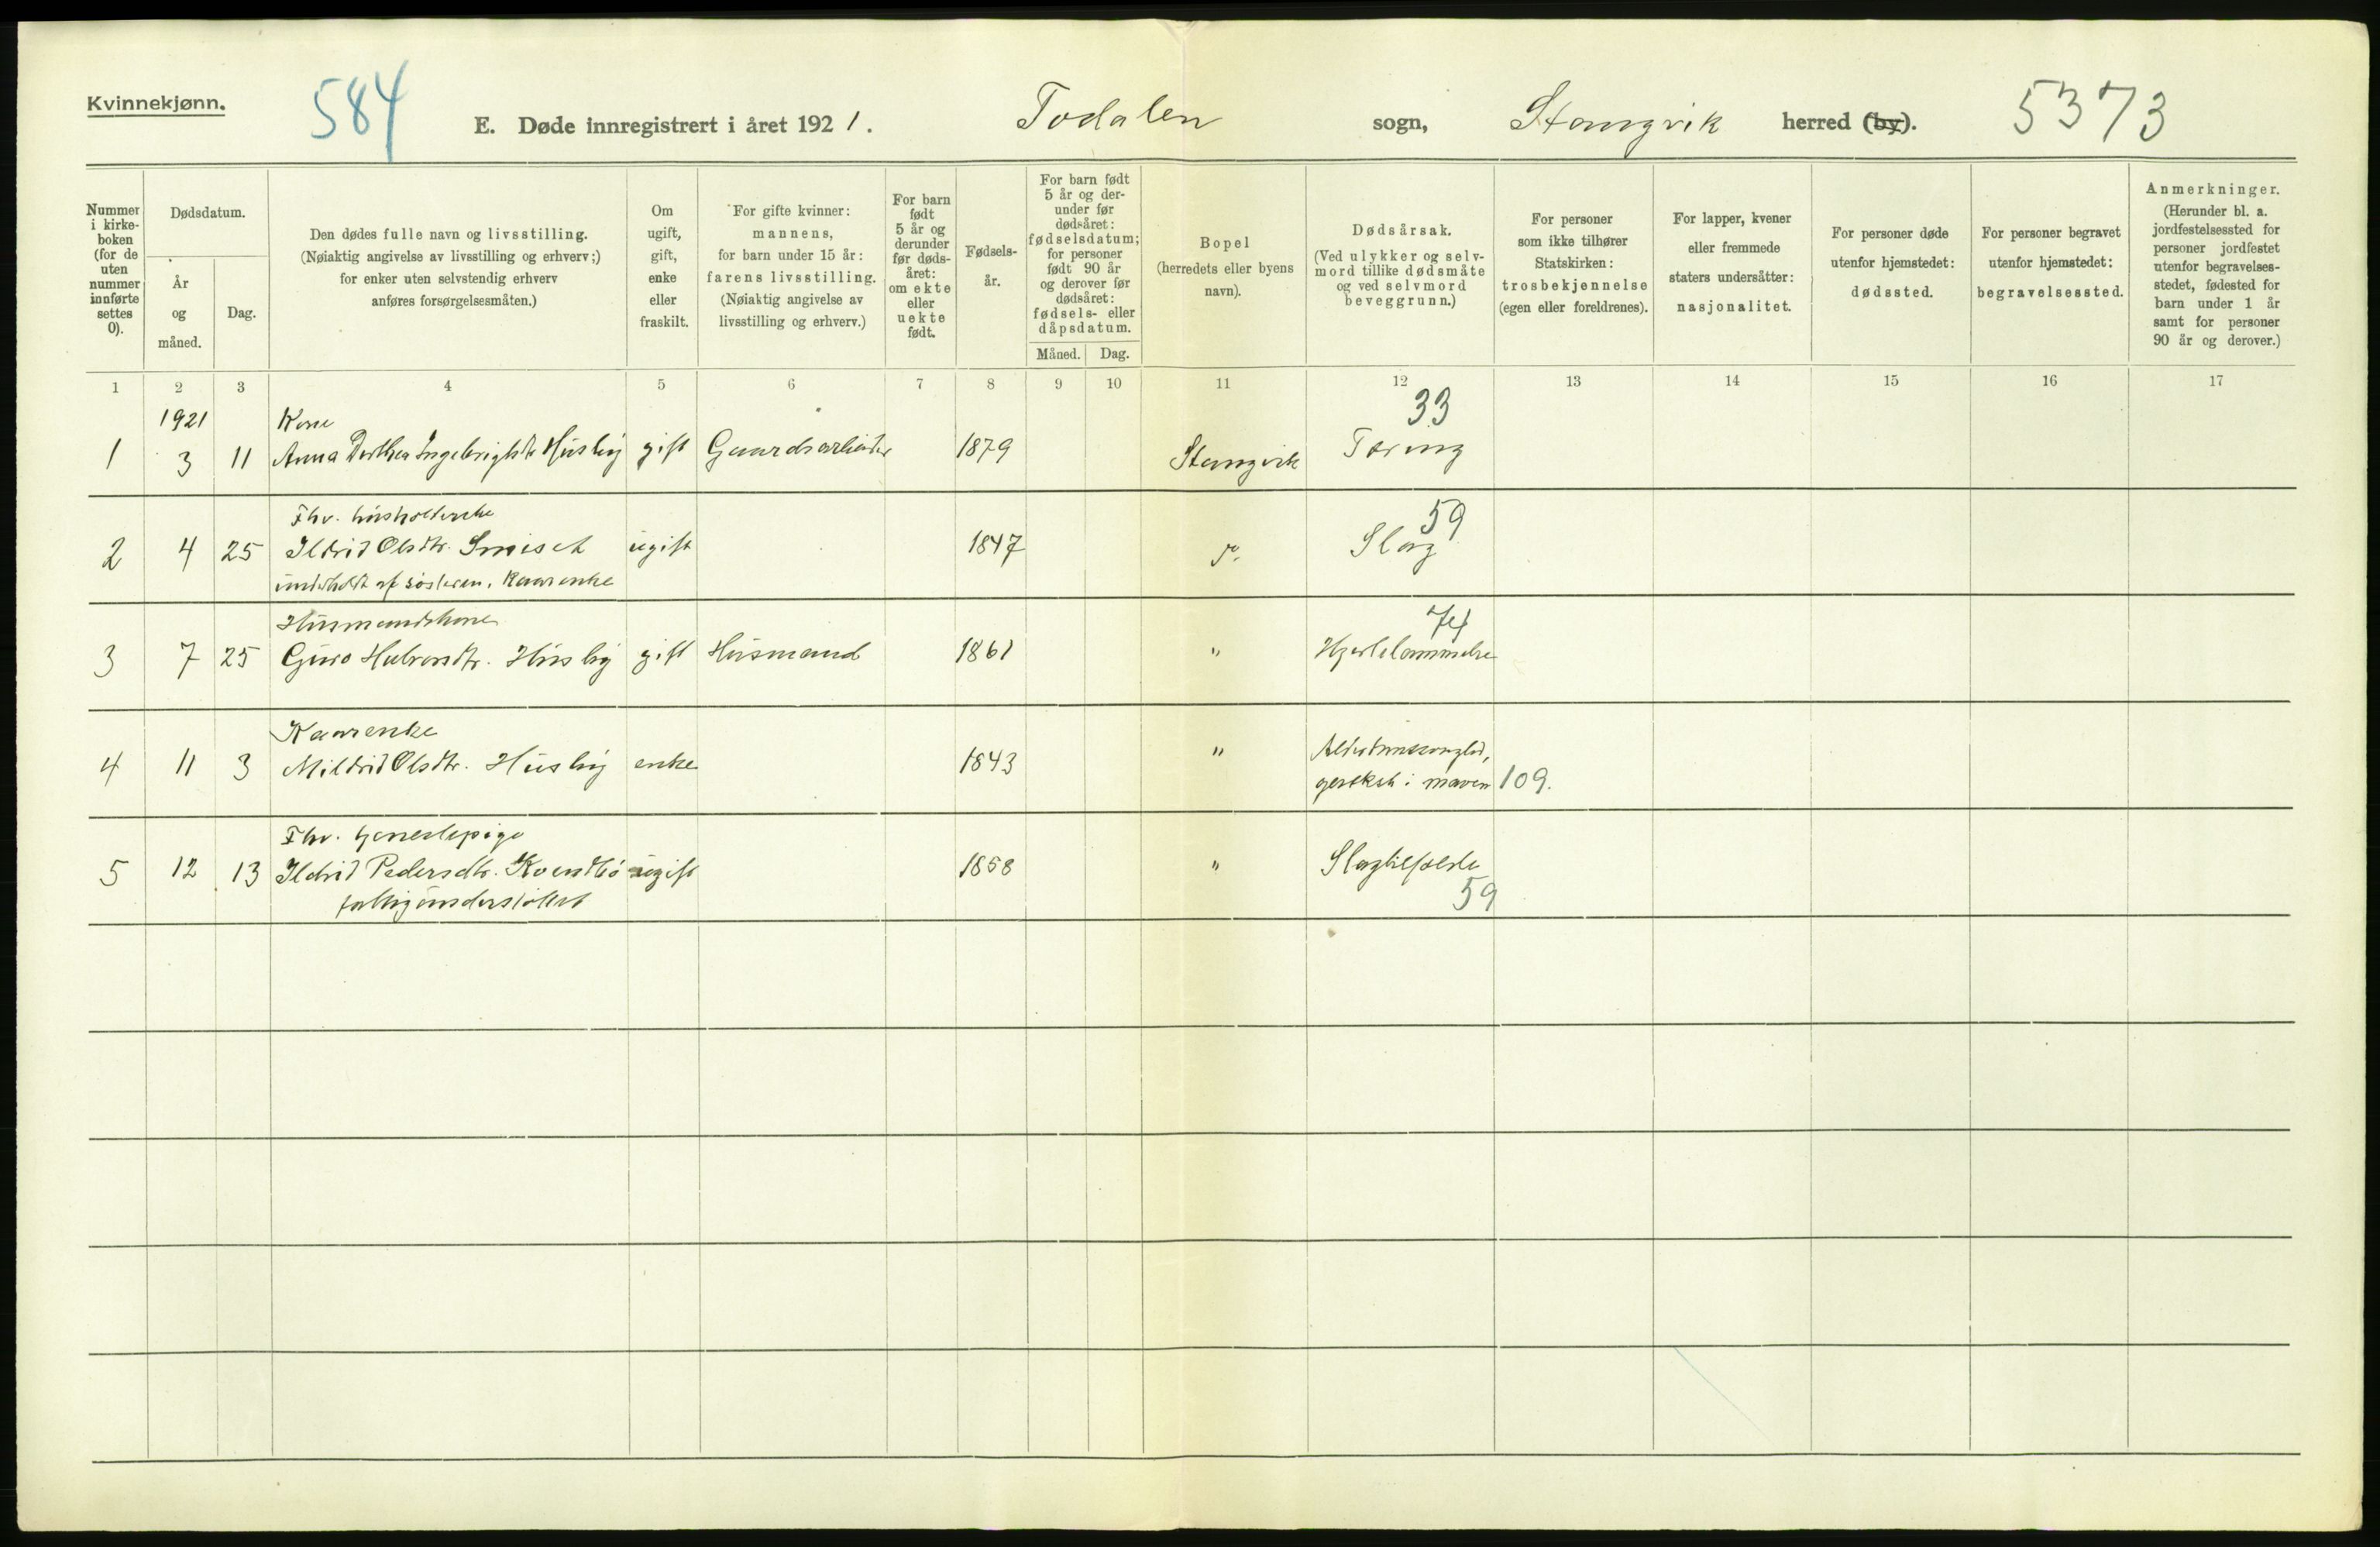 Kvinnekjønn.
584
E. Døde innregistrert i året 1921.
Todalen sogn, Stangvik herred (by).
5373
Nummer i kirkeboken (for de uten nummer innførte settes 0).
Dødsdatum.
År og måned.
Dag.
Den dødes fulle navn og livsstilling.
(Nøiaktig angivelse av livsstilling og erhverv;)
for enker uten selvstendig erhverv
anføres forsørgelsesmåten.)
Om ugift, gift, enke eller fraskilt.
For gifte kvinner:
mannens,
for barn under 15 år:
farens livsstilling.
(Nøiaktig angivelse av
livsstilling og erhverv.)
For barn født 5 år og derunder før dødsåret: om ekte eller uekte født.
Fødselsår.
For barn født 5 år og derunder før dødsåret: fødselsdatum; for personer født 90 år og derover før dødsåret: fødsels- eller dåpsdatum.
Måned. Dag.
Bopel
(herredets eller byens
navn).
Dødsårsak.
(Ved ulykker og selvmord tillike dødsmåte og ved selvmord beveggrunn.)
For personer
som ikke tilhører
Statskirken:
trosbekjennelse
(egen eller foreldrenes).
For lapper, kvener
eller fremmede
staters undersåtter:
nasjonalitet.
For personer døde
utenfor hjemstedet:
dødssted.
For personer begravet
utenfor hjemstedet:
begravelsessted.
Anmerkninger.
(Herunder bl. a.
jordfestelsessted for
personer jordfestet
utenfor begravelses-
stedet, fødested for
barn under 1 år
samt for personer
90 år og derover.)
1 2 3 4 5 6 7 8 9 10 11 12 13 14 15 16 17
1921 Kone 33
1 3 11 Anna Dorthea Ingebrigtsdtr Húsby gift Gaardsarbeider 1879 Stangvik Tæring
Fhv. húsholderske 59
2 4 25 Ildrid Olsdtr. úgift 1847 Slag
Kaarenke
Húsmandskone 74
3 7 25 Gúro Halvorsdtr. Húsby gift Húsmand 1861 " Hjertelammelse
Kaarenke
4 11 3 Mildrid Olsdtr. Húsby enke 1843 "
i maven 109.
Fhv.
5 12 13 Ildrid Pedersdtr. úgift 1858 " Slagtilfælde
59